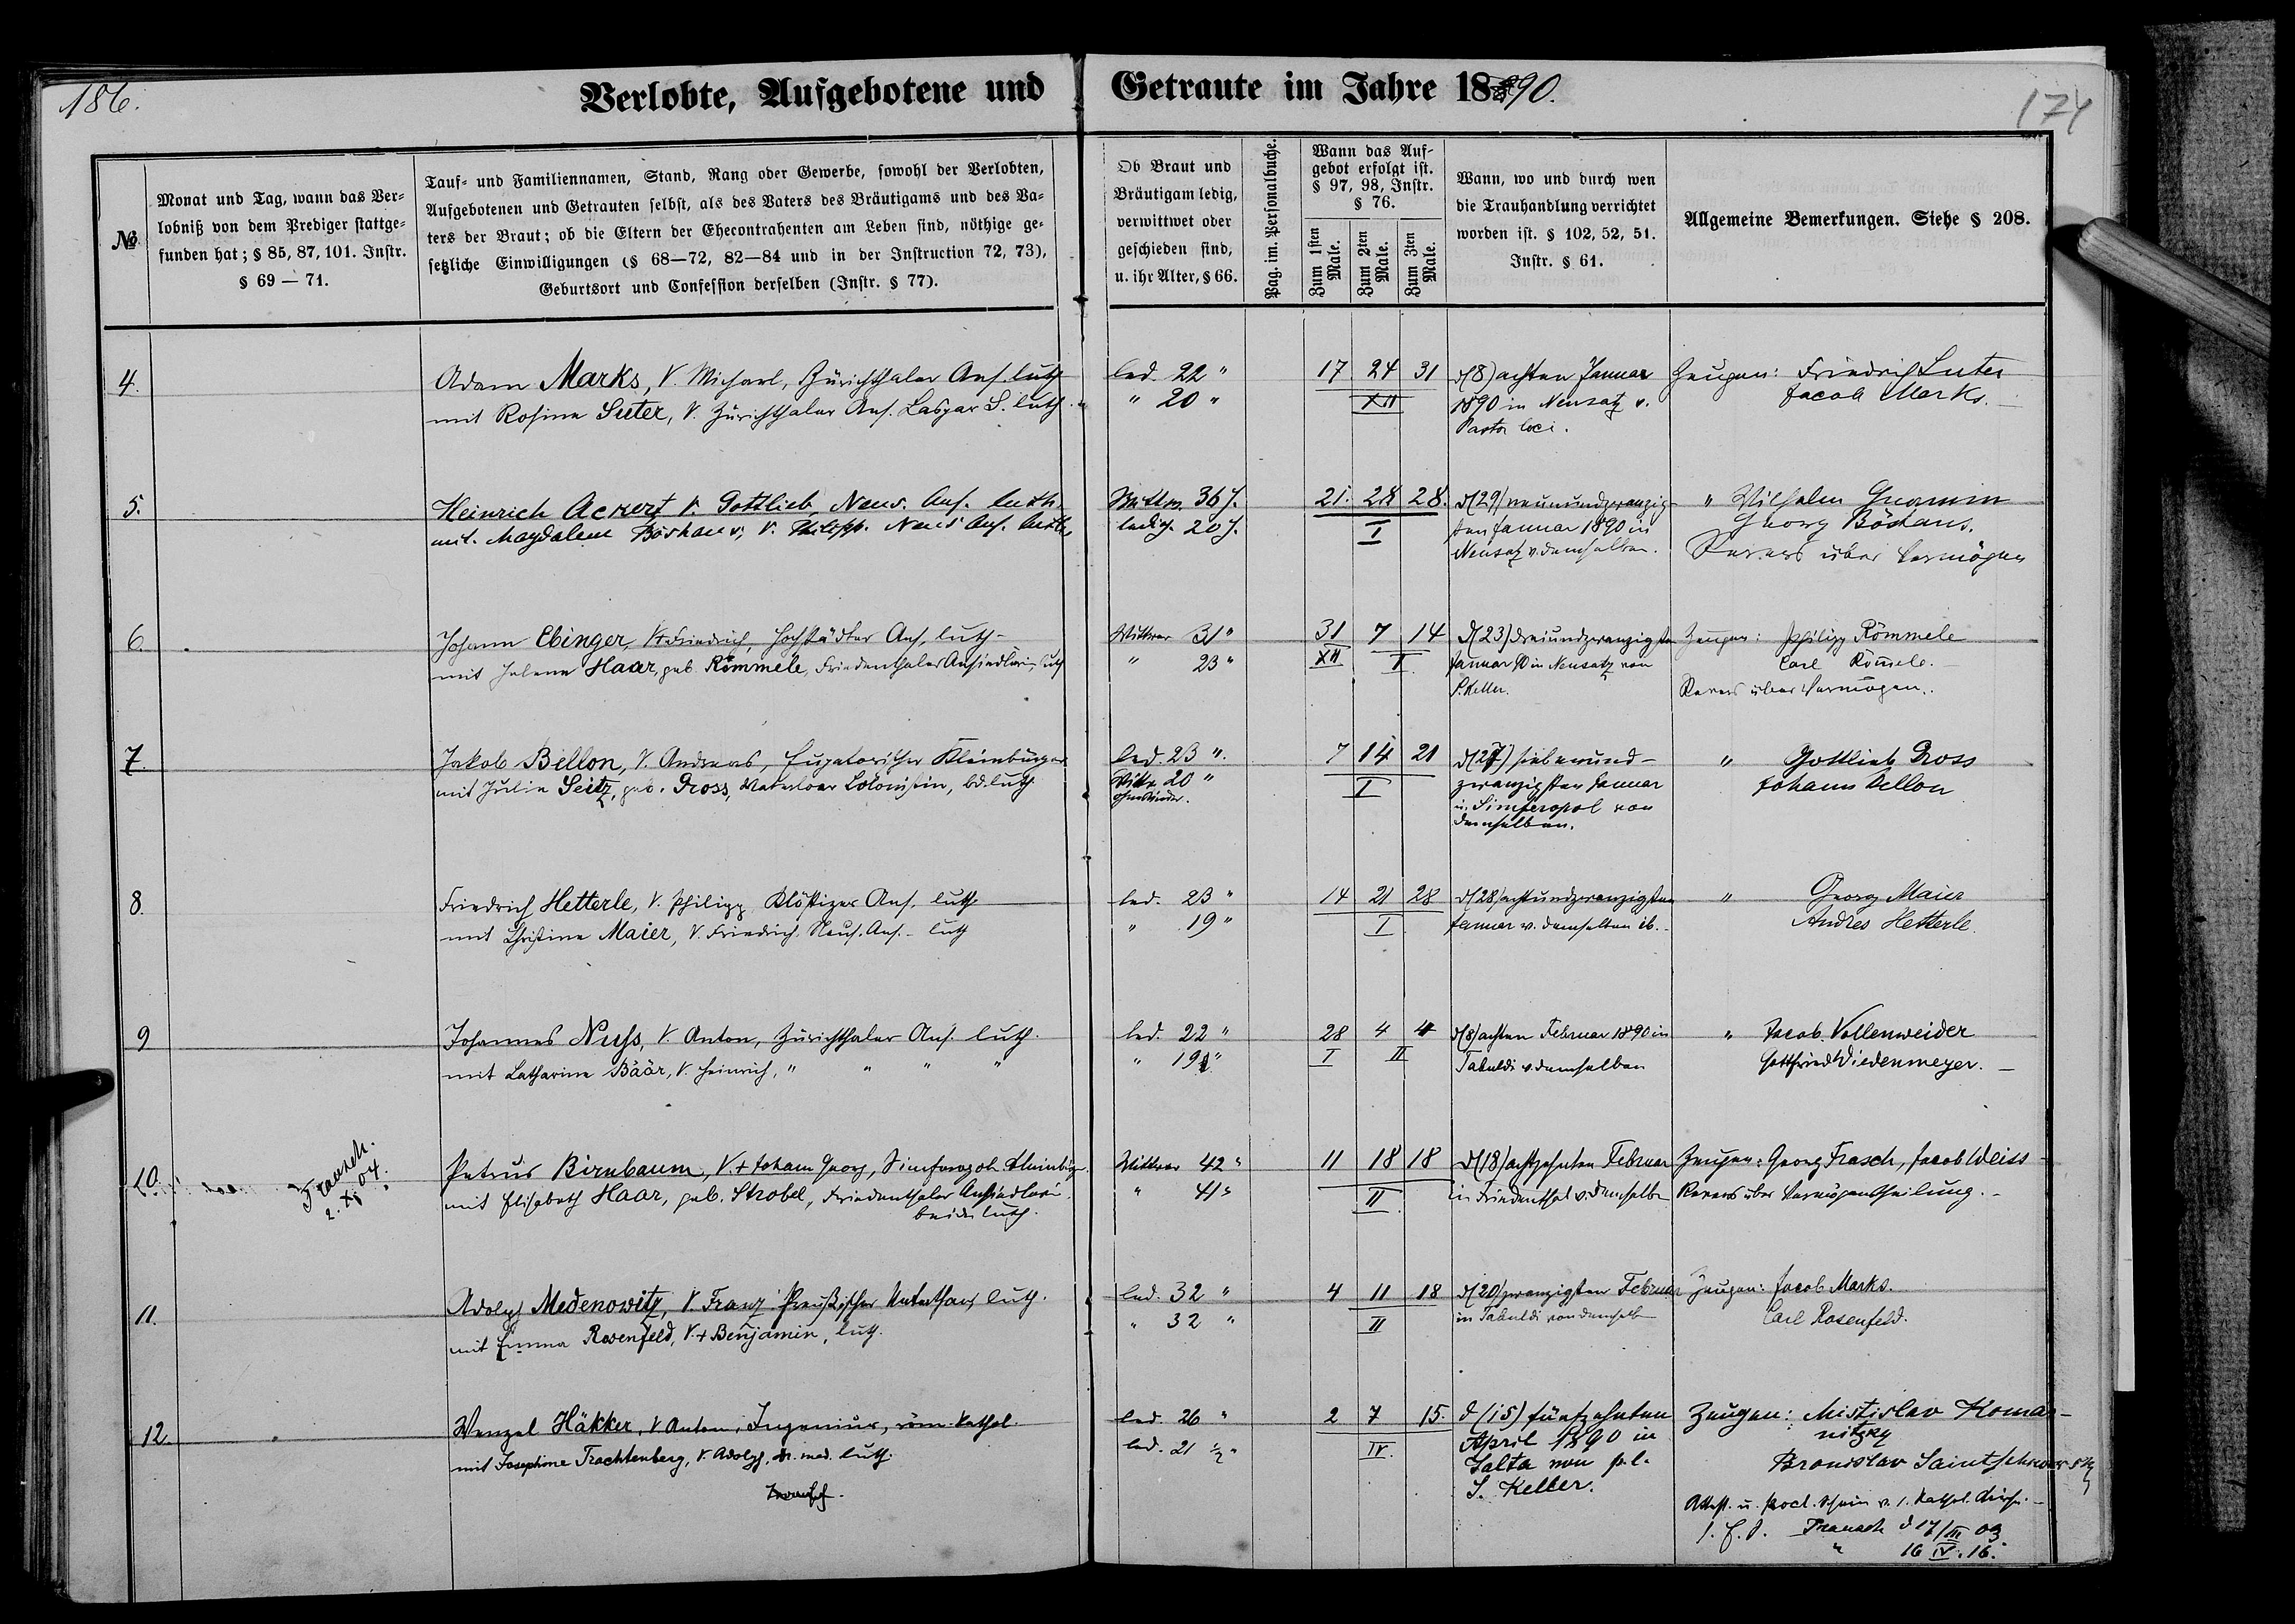 186.
Verlobte, Aufgebotene und Getraute im Jahre 1890.
174
№
Monat und Tag, wann das Ver-
lobniß von dem Prediger stattge-
funden hat; § 85, 87, 101. Instr.
§ 69 — 71.
Tauf- und Familiennamen, Stand, Rang oder Gewerbe, sowohl der Verlobten,
Aufgebotenen und Getrauten selbst, als des Vaters des Bräutigams und des Va-
ters der Braut; ob die Eltern der Ehecontrahenten am Leben sind, nöthige ge-
setzliche Einwilligungen (§ 68—72, 82—84 und in der Instruction 72, 73),
Geburtsort und Confession derselben (Instr. § 77).
Ob Braut und
Bräutigam ledig,
verwittwet oder
geschieden sind,
u. ihr Alter, § 66.
Pag. im. Personalbuche.
Wann das Auf-
gebot erfolgt ist.
§ 97, 98, Instr.
§ 76.
Zum 1sten Male.
Zum 2ten Male.
Zum 3ten Male.
Wann, wo und durch wen
die Trauhandlung verrichtet
worden ist. § 102, 52, 51.
Instr. § 61.
Allgemeine Bemerkungen. Siehe § 208.
4.
Adam Marks, V. Michael, Zürichthaler Ans. luth
mit Rosina Suter, V. Zürichthaler Ans. Caspar S. luth.
led. 22 "
" 20 "
17 24 31
XII
d (8) achten Januar
1890 in Neusatz v.
Pastor loci.
Zeugen: Friedrich Suter
Jacob Marks.
5.
Heinrich Ackert V. Gottlieb, Neus. Ans. luth.
mit Magdalena Böshans, V. Philipp. Neus Ans. luth.
Wittw. 36 J.
ledig. 20 J.
21. 28 28.
I
d (29) neunundzwanzig-
sten Januar 1890 in
Neusatz v. demselben.
" Wilhelm
Georg Böshans.
Revers über Vermögen
6.
Johann Ebinger, V+ Friedrich, Hochstädter Ans. luth-
mit Helena Haar, geb. Römmele, Friedenthaler Ansiedlerin, luth
Wittwer 31 "
" 23 "
31 7 14
XII I
d (23) dreiundzwanzigsten
Januar 90 in Neusatz von
P. Keller.
Zeugen: Philipp Römmele
Carl Römele.
Revers über Vermögen.
7.
Jakob Bellon, V. Andreas, Eupatorischer Kleinbürger
mit Julia Seitz, geb. Gross, Waterloer Colonistin, bd. luth
led. 23 "
Wittw. 20 "
ohne Kinder.
7 14 21
I
d (27) siebenund-
zwanzigsten Januar
in Simferopol von
demselben.
" Gottlieb Gross
Johann Bellon
8.
Friedrich Hetterle, V. Philipp Ans. luth
mit Christina Maier, V. Friedrich. Neus. Ans. luth
led. 23 "
" 19 "
14 21 28
I
d (28) achtundzwanzigsten
Januar v. demselben ib.
" Georg Maier
Andres Hetterle
9
Johannes Nuss, V. Anton, Zürichthaler Ans. luth.
mit Catharina Bäär, V. Heinrich, " " " "
led. 22 "
" 19 "
28 4 4
I II
d (8) achten Februar 1890 in
Tabuldi v. demselben
" Jacob. Vollenweider
Gottfried Wiedenmeyer.
10.
Trausch.
2. XI 04.
Petrus Birnbaum, V.+ Johann Georg, Simferopol. Kleinbürger
mit Elisabeth Haar, geb. Strobel, Friedenthaler Ansiedlerin.
beide luth.
Wittwer 42 "
" 41 "
11 18 18
II
d (18) achtzehnten Februar
in Friedenthal v. demselben
Zeugen: Georg Frasch, Jacob Weiss
Revers über Vermögenstheilung.
11.
Adolph Medenowitz, V. Franz Preußischer Unterthan, luth.
mit Emma Rosenfeld, V.+ Benjamin, luth.
led. 32 "
" 32 "
4 11 18
II
d (20) zwanzigsten Februar
in Tabuldi von demselb
Zeugen: Jacob Marks.
Carl Rosenfeld.
12
Wenzel Häkker, V. Anton, Ingenieur, röm. kathol.
mit Josephine Trachtenberg, V. Adolph, Dr. med. luth.
led. 26 "
led. 21 ½ "
2 7 15.
IV.
d (15) fünfzehnten
April 1890 in
Jalta von
S. Keller.
Zeugen: Mistislav Komar-
nitzky
Bronislav
Attest. u. Schein v. kathol. Kirche.
Trausch d 17/III 03
" 16 IV. 16.